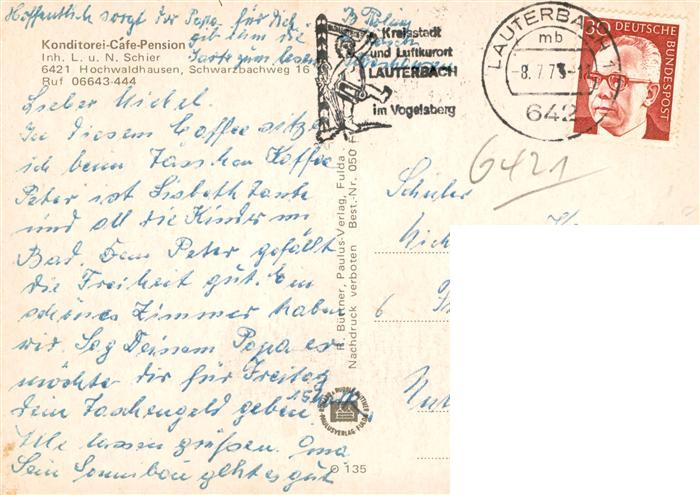 Hoffentlich sorgt der Papa für Dich.
gib ihm die
Karte zum lesen
Konditorei-Café-Pension
Inh. L. u. N. Schier
6421 Hochwaldhausen, Schwarzbachweg 16
Ruf 06643-444
Lieber Michel.
In diesem Caffee sitze
ich beim Tässchen Kaffee
Peter ist Lisbeth Tante
und all die Kinder im
Bad. Dem Peter gefällt
die Freiheit gut. Ein
schönes Zimmer haben
wir. Sag Deinem Papa er
möchte dir für Freitag
dein Taschengeld geben
Alle lassen grüßen. Oma
geht es gut
R. Büttner, Paulus-Verlag, Fulda
Nachdruck verboten Best.-Nr. 050 F
PAULUSVERLAG FULDA
O 135
Kreisstadt
und Luftkurort
LAUTERBACH
im Vogelsberg
LAUTERBACH 1
mb
-8.7.7
642
30 DEUTSCHE BUNDESPOST
6421
Schüler
6